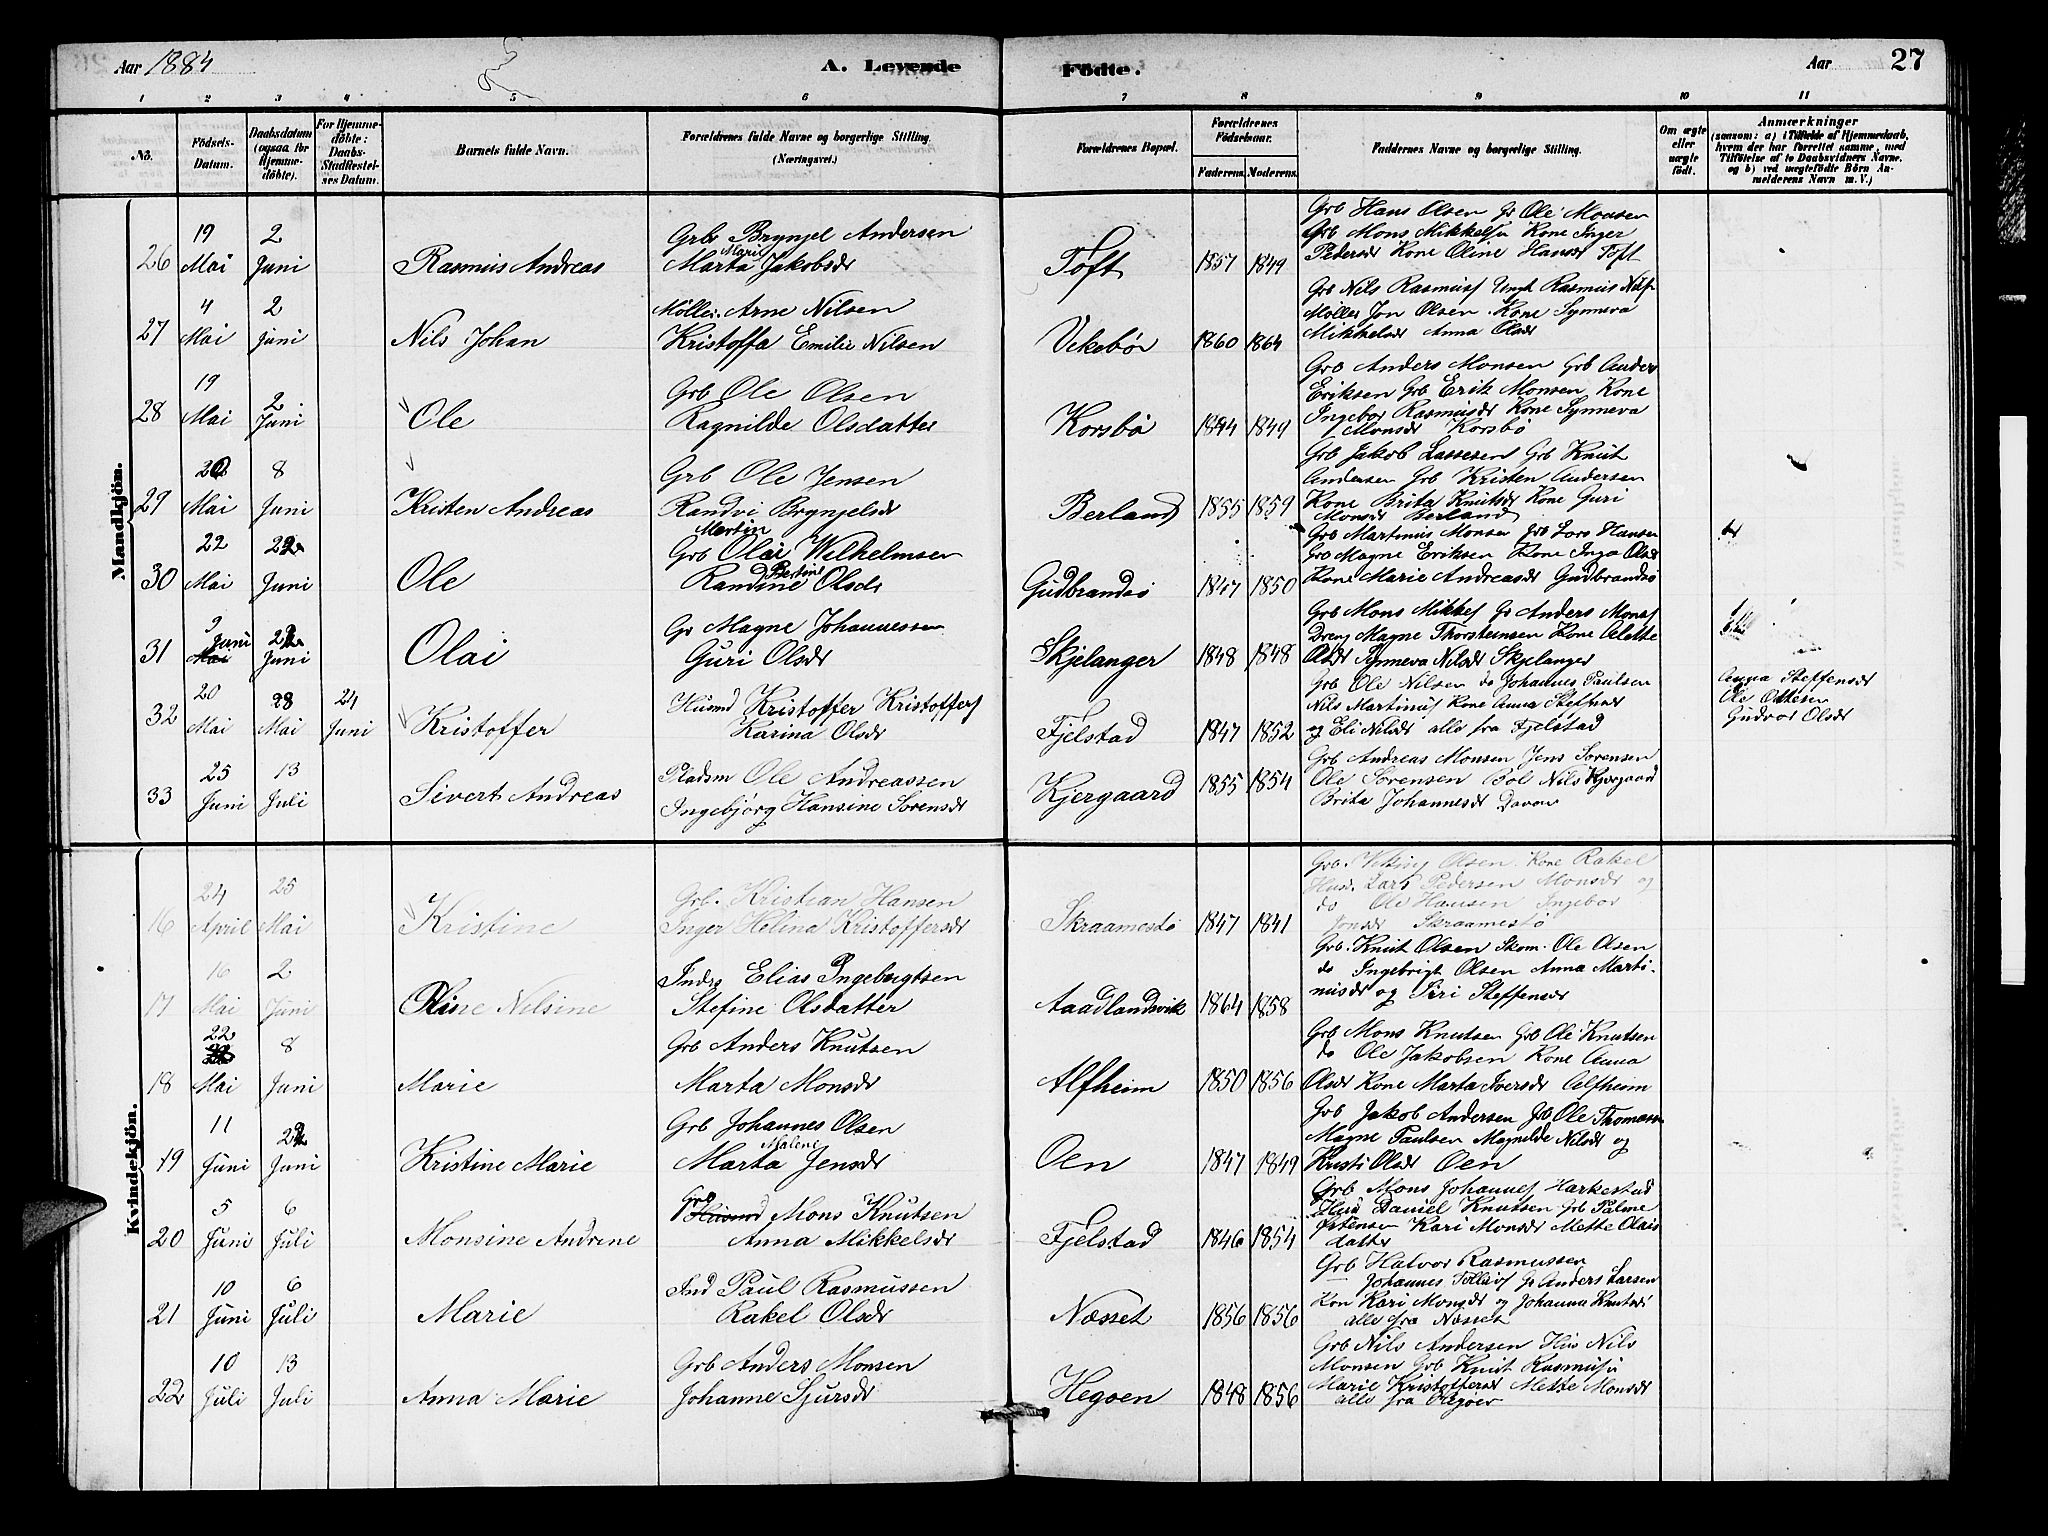 Aar 1884
A. Levende
Födte.
Aar
27
1 2 3 4 5 6 7 8 9 10 11
No.
Födsels-Datum.
Daabsdatum (ogsaa for Hjemmedöbte).
For Hjemmedöbte: Daabs-Stadfæstelses Datum.
Barnets fulde Navn.
Forældrenes fulde Navne og borgerlige Stilling. (Næringsvei.)
Forældrenes Bopæl.
Forældrenes Födselsaar.
Faderens. Moderens.
Faddernes Navne og borgerlige Stilling.
Om ægte eller uægte födt.
Anmærkninger
(saasom: a) i Tilfælde af Hjemmedaab, hvem der har forrettet samme, med Tilföielse af to Daabsvidners Navne, og b) ved uægtefödte Börn Anmelderens Navn m. V.)
Mandkjön.
26 19 Mai 2 Juni Rasmus Andreas
Grbr Brynjel Andersen
Marta Marie Jakobsdr
Toft 1857 1849
Grb Hans Olsen Gr Ole Monsen
Grb Mons Mikkels Kone Inger
Pedersdr Kone Oline Hansdr Toft
27 4 Mai 2 Juni Nils Johan
Möller Arne Nilsen
Kristoffa Emilie Nilsen
Vikebö 1860 1864
Grb Nils Rasmuss Ungk Rasmus Nils
Möller Jon Olsen. Kone Synneva
Mikkelsdr Anna Olsdr
28 19 Mai 2 Juni Ole
Grb Ole Olsen
Ragnilde Olsdatter
Korsbö 1844 1849
Grb Anders Monsen Grb Anders
Eriksen Grb Erik Monsen Kone
Ingebor Rasmusdr Kone Synneva
Monsdr Korsbö
29 Mai 8 Juni Kristen Andreas
Grb Ole Jensen
Randvi Brynjelsdr
Berland 1855 1859
Grb Jakob Lassesen Grb Knut
Andersen Grb Kristen Andersen
Kone Brita Knutsdr Kone Guri
Monsdr Berland
30 22 Mai 22 Juni Ole
Grb Olai Martin Wilhelmsen
Randine Bertine Olsdr
Gudbrandsö 1847 1850
Grb Martinus Monsen Grb Lars Hansen
Grb Magne Eriksen Kone Inga Olsdr
Kone Marie Andreasdr Gudbrandsö
31 9 Juni 22 Juni Olai
Gr Magne Johannessen
Guri Olsdr
Skjelanger 1848 1848
Grb Mons Mikkels Gr Anders Mons
Dreng Magne Thorsteinsen Kone Alette
Olsdr Synneva Nilsdr Skjelanger
32 20 Mai 28 Mai 24 Juni Kristoffer
Husmd Kristoffer Kristoffers
Karina Olsdr
Fjelstad 1847 1852
Grb Ole Nilsen do Johannes Paulsen
Nils Martinus Kone Anna Steffensdr
og Eli Nilsdr alle fra Fjelstad
Anna Steffensdr
Ole Ottesen
Gudvor Olsdr
33 25 Juni 13 Juli Sivert Andreas
Pladsm Ole Andreassen
Ingebjörg Hansine Sorensdr
Kjergaard 1855 1854
Grb Andreas Monsen Jens Sorensen
Ole Sorensen Bol Nils Kjergaard
Brita Johannesdr
Kvindekjön.
16 24 April 25 Mai Kristine
Grb. Kristian Hansen
Inger Helina Kristoffersdr
Skraamestö 1847 1841
Grb. Olsen. Kone Rakel
Husd. Lars Pedersen Monsdr og
do Ole Hansen Ingebor
Jonsdr Skraamestö
17 16 Mai 2 Juni Oline Nilsine
Inds Elias Ingebrigtsen
Stefine Olsdatter
Aaadlandsvik 1864 1858
Grb. Knut Olsen Skom. Ole Olsen
do Ingebrigt Olsen Anna Marti-
nusdr og Siri Steffensdr
18 22 Mai 8 Juni Marie
Grb Anders Knutsen
Marta Monsdr
Alfheim 1850 1856
Grb Mons Knutsen Grb Ole Knutsen
do Ole Jakobsen Kone Anna
Olsdr Kone Marta Iversdr Alfheim
19 11 Juni 22 Juni Kristine Marie
Grb Johannes Olsen
Marta Malene Jensdr
Oen 1847 1849
Grb Jakob Andersen Grb Ole Thomassen
Magne Paulsen Magnilde Nilsdr og
Kristi Olsdr Oen
20 5 Juni 6 Juli Monsine Andrene
Grb Mons Knutsen
Anna Mikkelsdr
Fjelstad 1846 1854
Grb Mons Johannes Harkestad
Husd Daniel Knutsen Grb Palme
Östensen Kari Monsdr Mette Olais
datter
21 10 Juni 6 Juli Marie
Ind Paul Rasmussen
Rakel Olsdr
Næsset 1856 1856
Grb Halvor Rasmussen
Johannes Tollevs Gr Anders Larsen
Kon Kari Monsdr og Johanna Knutsdr
alle fra Næsset
22 10 Juli 13 Juli Anna Marie
Grb Anders Monsen
Johanne Sjursdr
Hegöen 1848 1856
Grb Nils Andersen Hus Nils
Monsen Grb Knut Rasmuss
Marie Kristoffersdr Mette Monsdr
alle fra